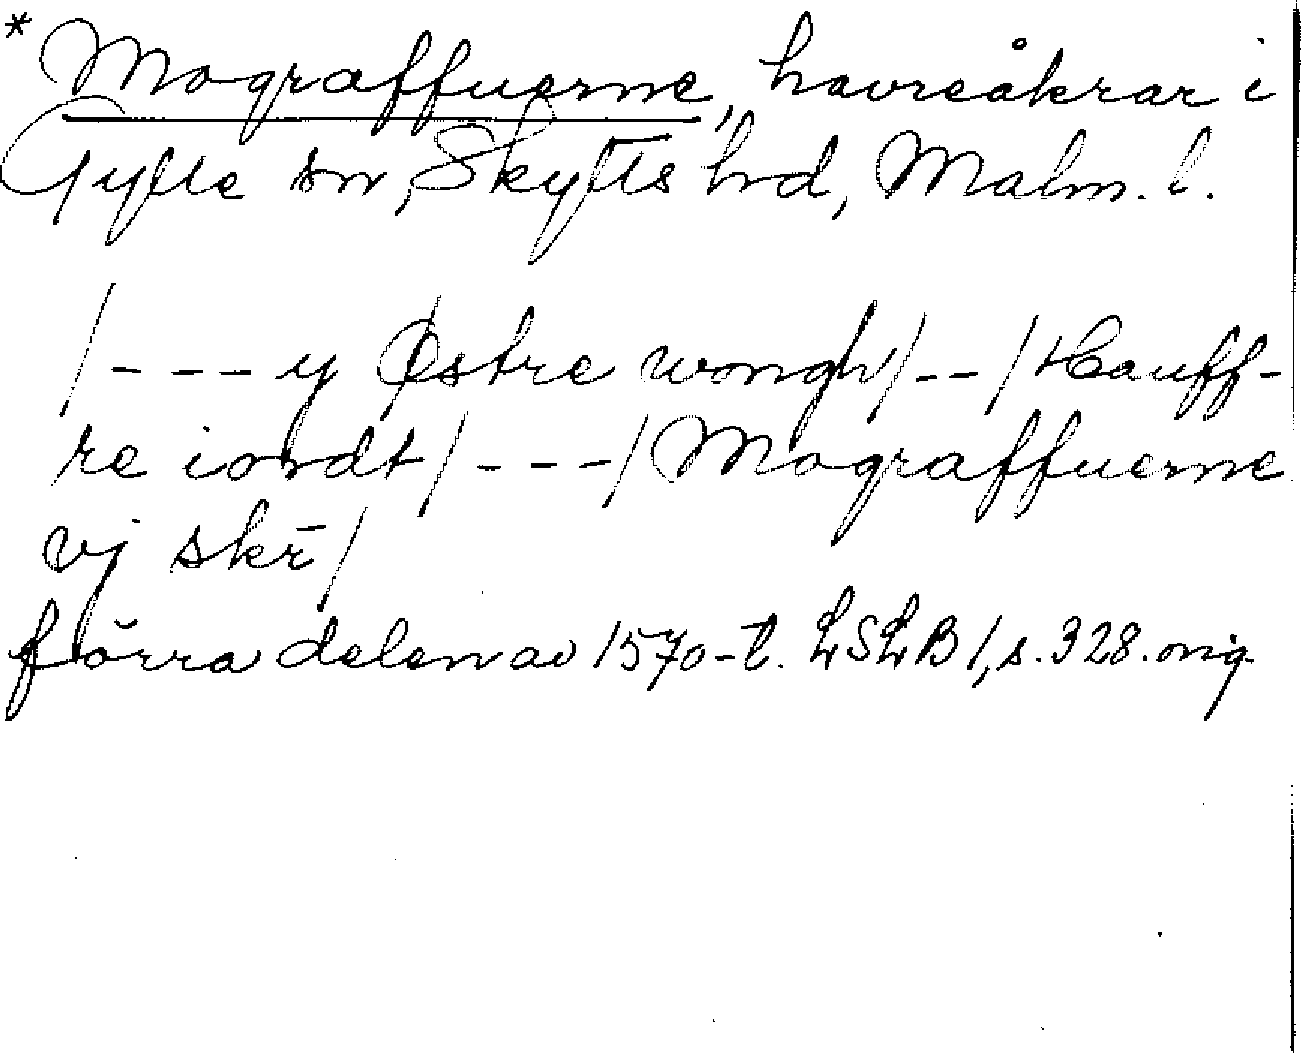 * Mograffuerne, havreåkrar i
Gylle sn, Skytts hd, Malm. l.
/---y Østre wongh/--/Hauff-
re iordt/---/Mograffuerne
vj skr̄/
förra delen av 1570-t. LSLB 1, s. 328. orig.